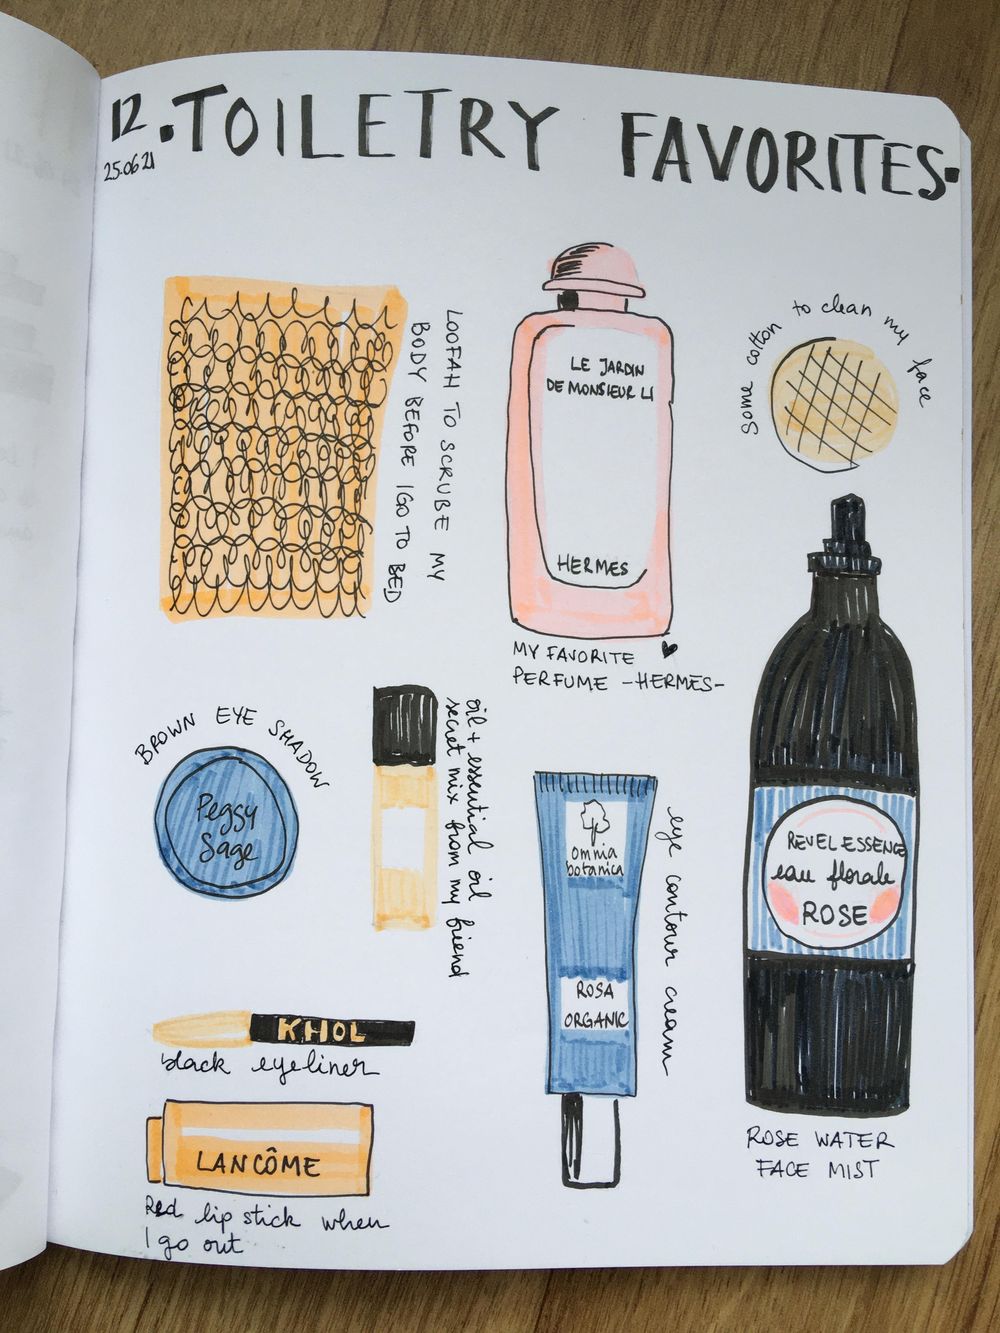 12. TOILETRY FAVORITES.
25.06 21
LOOFAH TO SCRUBE MY
BODY BEFORE I GO TO BED
LE JARDIN
DE MONSIEUR LI
HERMES
MY FAVORITE
PERFUME -HERMES-
Some cotton to clean my face
BROWN EYE SHADOW
Peggy
Sage
oil + essential oil
secret mix from my friend
omnia
botanica
ROSA
ORGANIC
eye contour cream
REVEL ESSENCE
eau florale
ROSE
ROSE WATER
FACE MIST
KHOL
black eyeliner
LANCÔME
Red lip stick when
I go out